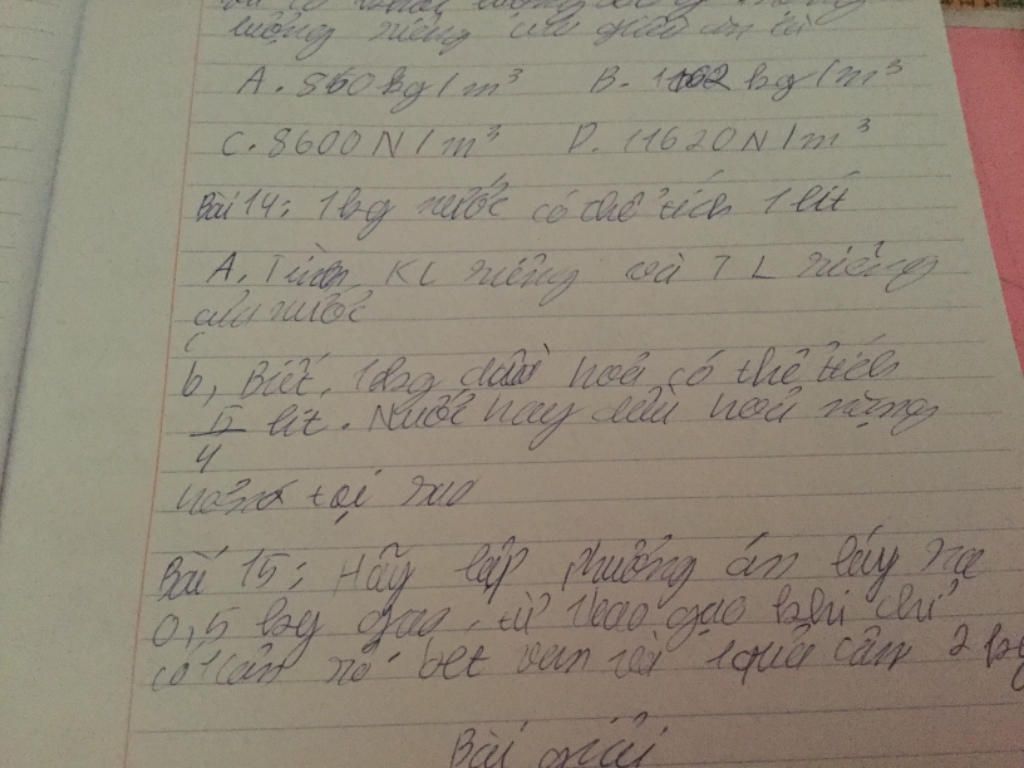 lượng riêng của giấu ăn là
A. 860 kg/m³ B. 1162 kg/m³
C. 8600 N/m³ D. 11620 N/m³
Bài 14: 1kg nước có thể tích 1 lít
A, Tính KL riêng và TL riêng
của nước
b, Biết 1kg dầu hoả có thể tích
5/4 lít. Nước hay dầu hoả nặng
hơn tại sao
Bài 15: Hãy lập phương án lấy ra
0,5 kg gạo từ 1 bao gạo khi chỉ
có 1 cân rô béc van với 1 quả cân 2 kg
Bài giải